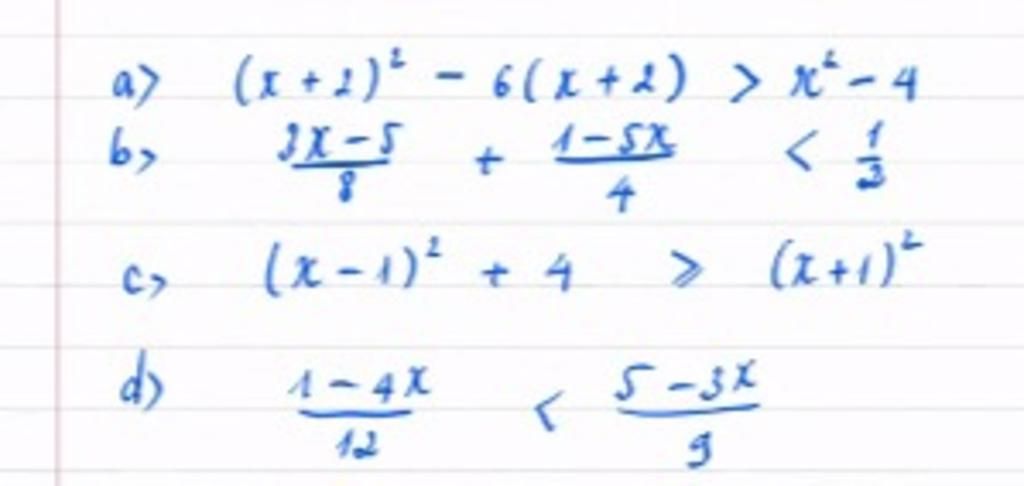 a) (x+2)² - 6(x+2) > x² - 4
b) (3x-5)/8 + (1-5x)/4 < 1/2
c) (x-1)² + 4 > (x+1)²
d) (1-4x)/12 < (5-3x)/9